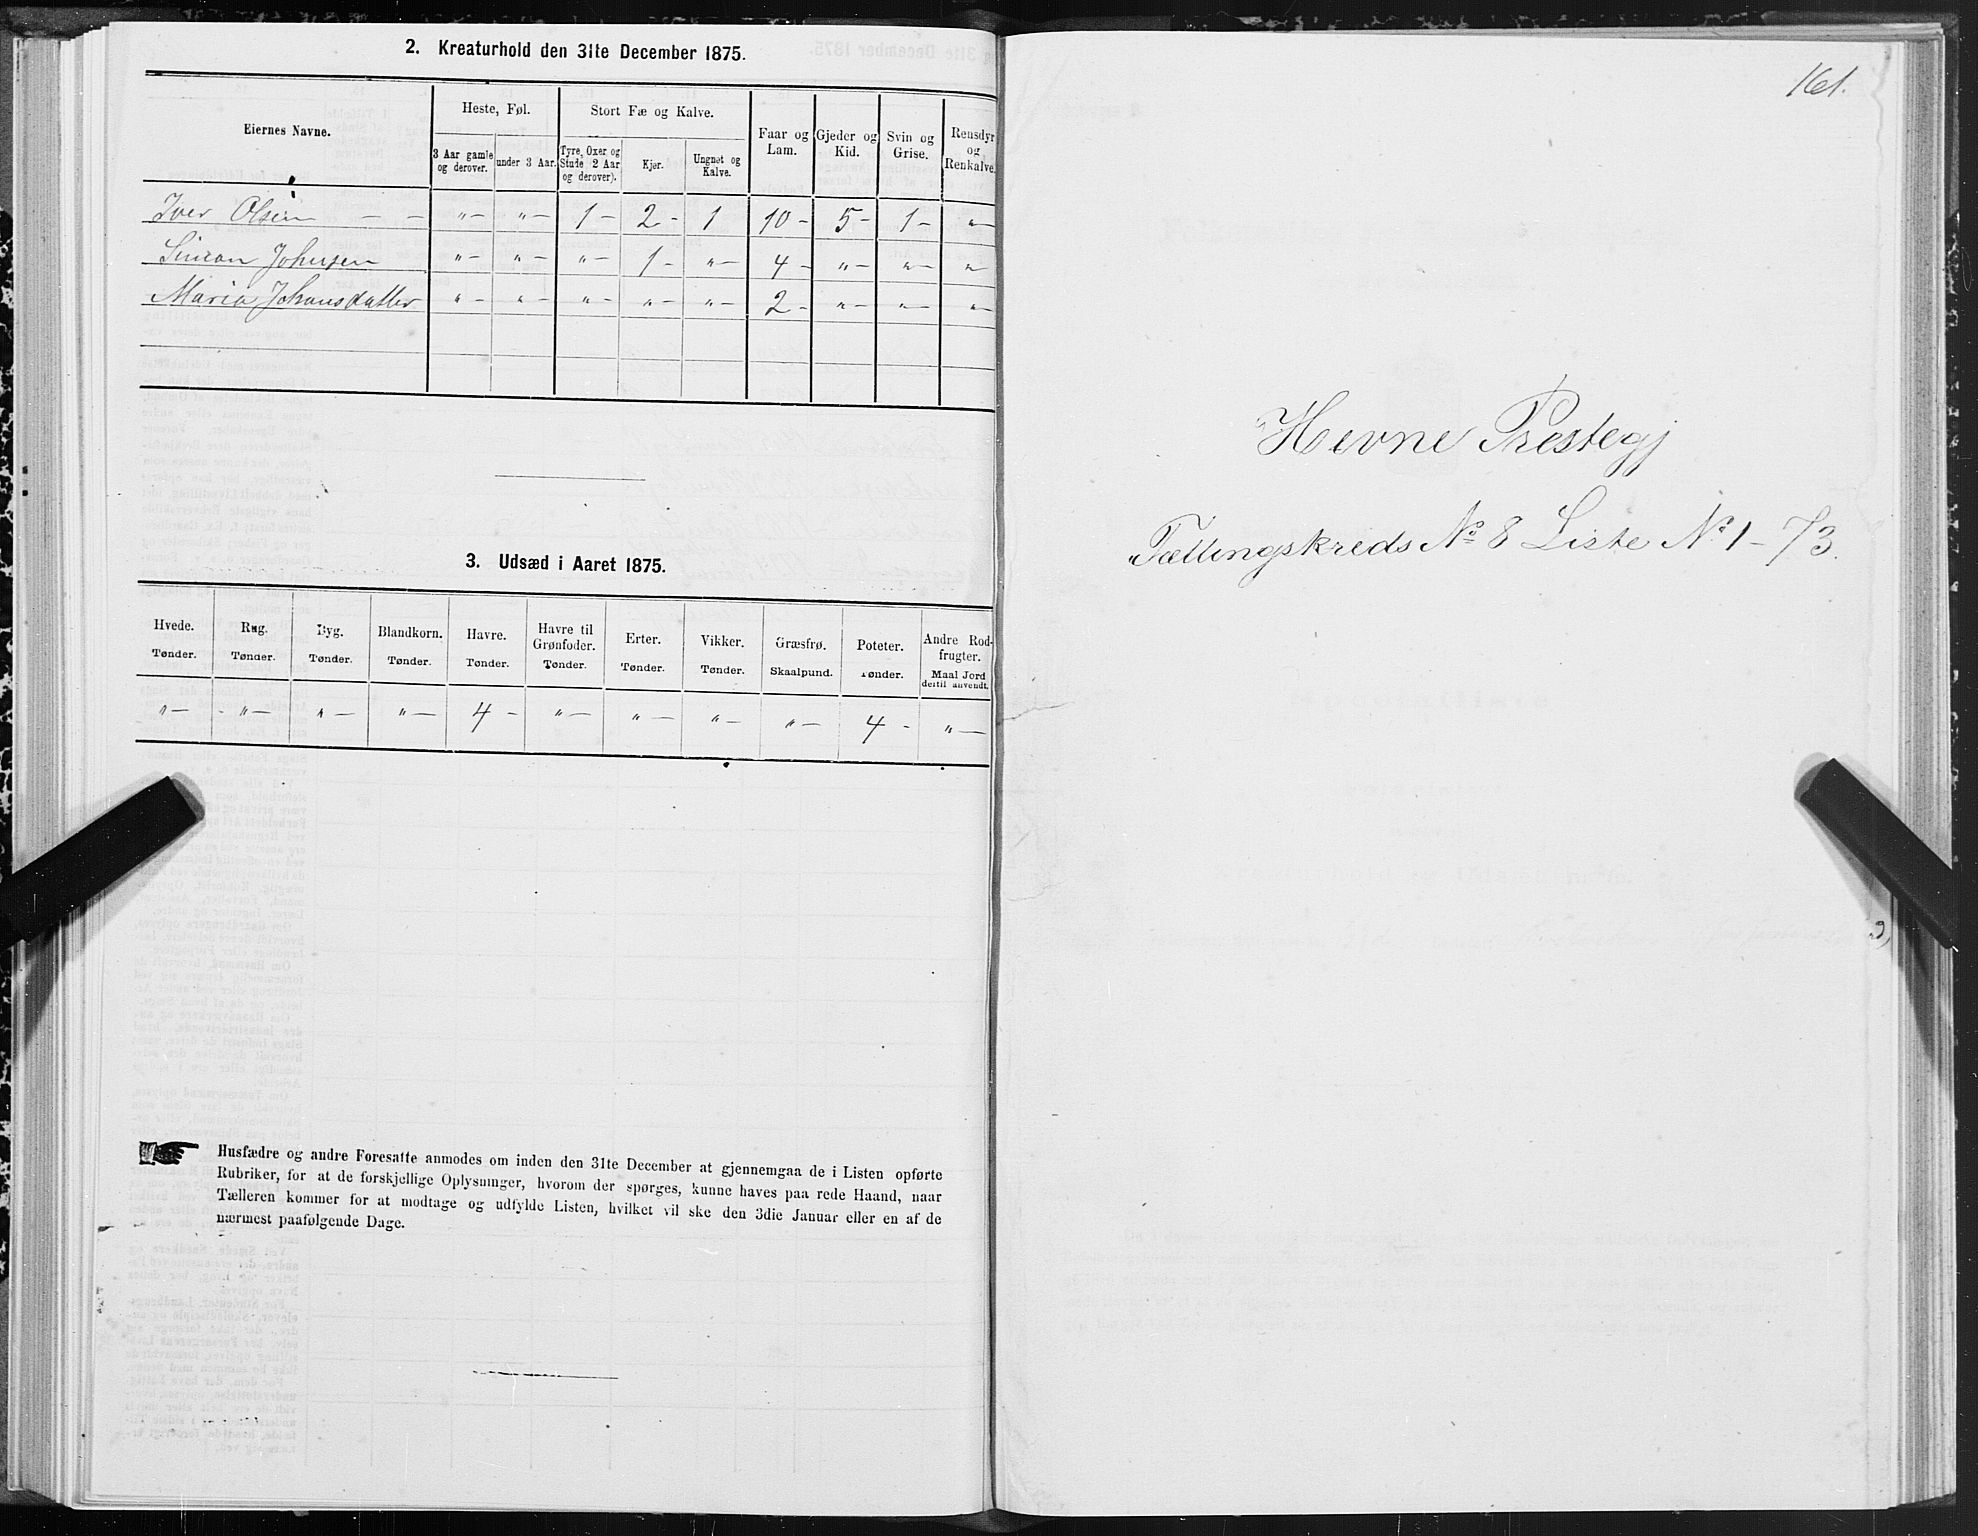 2. Kreaturhold den 31te December 1875.
Eiernes Navne. | Heste, Føl. | Stort Fæ og Kalve. | Faar og Lam. | Gjeder og Kid. | Svin og Grise. | Rensdyr og Renkalve.
3 Aar gamle og derover. | under 3 Aar. | Tyre, Oxer og Stude (2 Aar og derover). | Kjør. | Ungnøt og Kalve.
Iver Olsen — — | "— | "— | 1- | 2- | 1 | 10- | 5- | 1- | "—
Simon Johnsen | "— | "— | "— | 1- | "— | 4- | "— | "— | "—
Maria Johansdatter | "— | "— | "— | "— | "— | 2- | "— | "— | "—
3. Udsæd i Aaret 1875.
Hvede. | Rug. | Byg. | Blandkorn. | Havre. | Havre til Grønfoder. | Erter. | Vikker. | Græsfrø. | Poteter. | Andre Rodfrugter.
Tønder. | Tønder. | Tønder. | Tønder. | Tønder. | Tønder. | Tønder. | Tønder. | Skaalpund. | Tønder. | Maal Jord dertil anvendt.
"— | "— | "— | "— | 4 - | "— | "— | "— | "— | 4 - | "—
Husfædre og andre Foresatte anmodes om inden den 31te December at gjennemgaa de i Listen opførte
Rubriker, for at de forskjellige Oplysninger, hvorom der spørges, kunne haves paa rede Haand, naar
Tælleren kommer for at modtage og udfylde Listen, hvilket vil ske den 3die Januar eller en af de
nærmest paafølgende Dage.
161.
Hevne Prestegj
Tællingskreds No 8 Liste No 1-73.